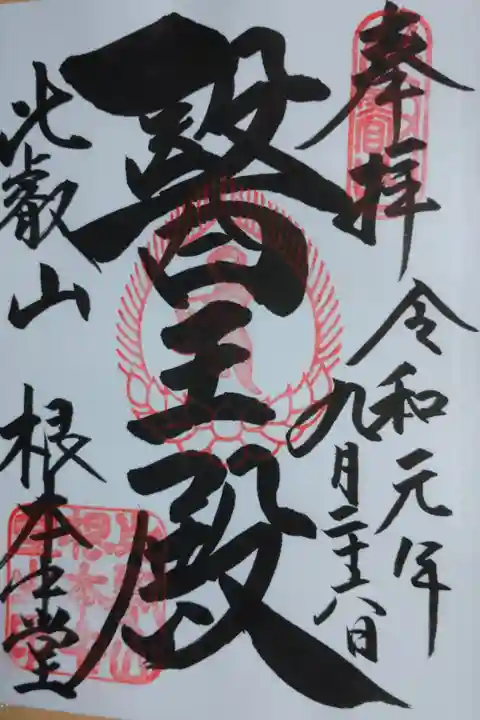 奉拝
令和元年
九月二十八日
醫王殿
比叡山 根本中堂